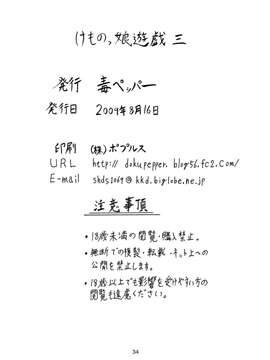 けもの っ娘遊戯 三
発行 毒ペッパー
発行日 2009年8月16日
印刷 (株)ポプルス
URL http://dokupepper.blog56.fc2.com/
E-mail shds1069@kkd.biglobe.ne.jp
注意事項
・18歳未満の閲覧・購入禁止。
・無断での複製・転載・ネット上への
公開を禁止します。
・18歳以上でも影響を受けやすい方の
閲覧も遠慮ください。
34